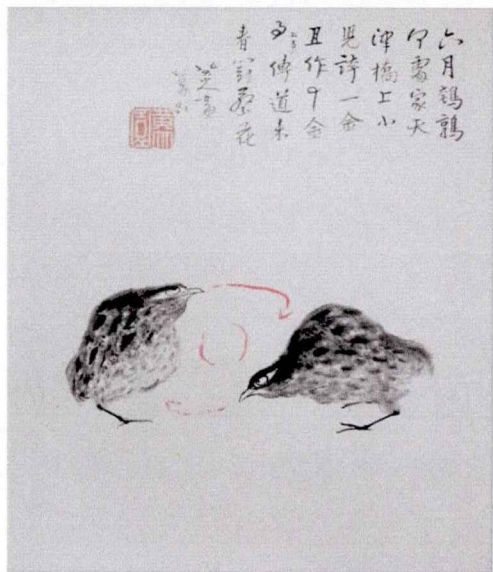 六月鵪鶉
何處家天
津橋上小
兒誇一金
且作十金
事傳道來
青鬪蔡花